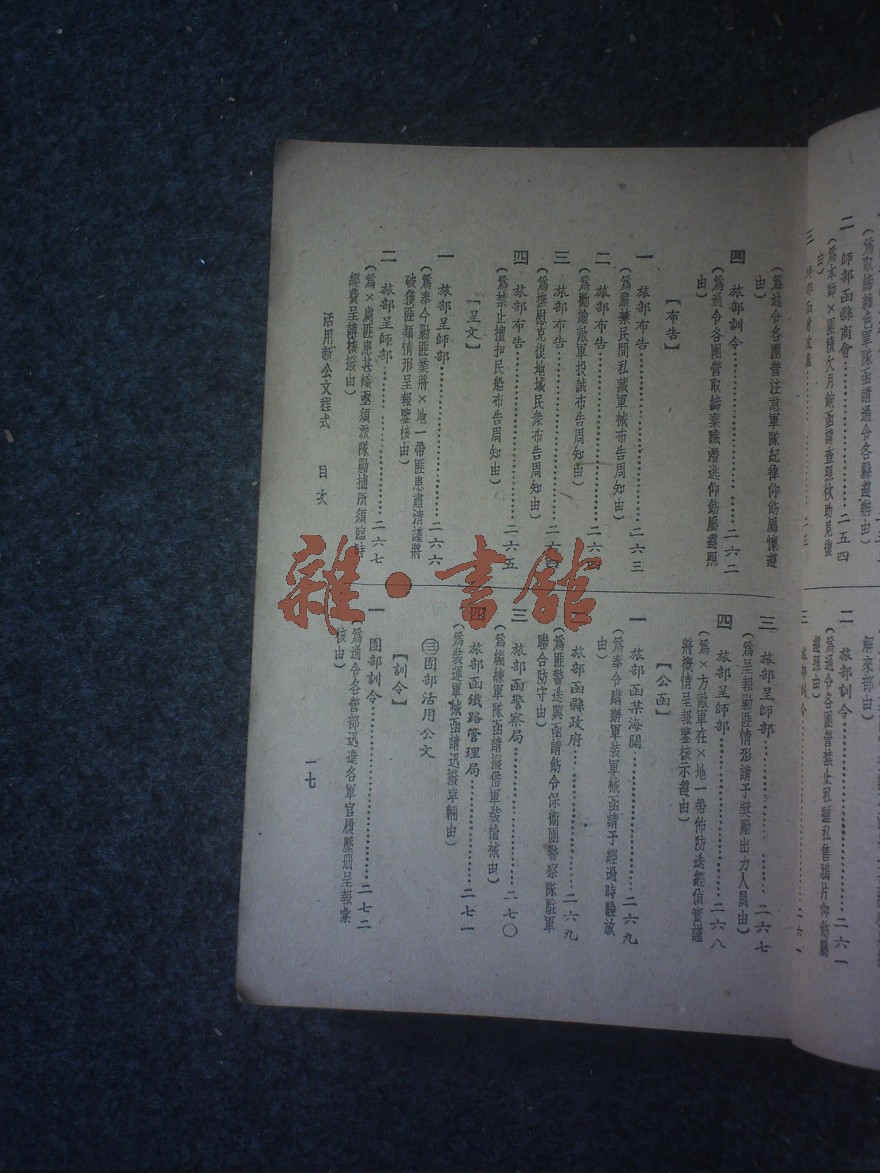 二 師部函縣商會……二五四
(爲本師×團積欠月餉函請查照攸助見復
由)
二 旅部訓令……二六一
(爲通令各團營禁止私種私售鴉片仰飭屬
遵照由)
(爲通令各團營注意軍隊紀律仰飭屬懍遵
由)
四 旅部訓令……二六二
(爲通令各團營取締棄職潛逃仰飭屬遵照
由)
【布告】
一 旅部布告……二六三
(爲嚴禁民間私藏軍械布告周知由)
二 旅部布告……二六四
(爲勸諭敵軍投誠布告周知由)
三 旅部布告……二六四
(爲撫慰克復地域民衆布告周知由)
四 旅部布告……二六五
(爲禁止擅扣民船布告周知由)
【呈文】
一 旅部呈師部……二六六
(爲奉令勦匪業將×地一帶匪患肅清謹將
破獲匪類情形呈報鑒核由)
二 旅部呈師部……二六七
(爲×處匪患甚熾亟須派隊勦捕所須臨時
經費呈請核撥由)
三 旅部呈師部……二六七
(爲呈報勦匪情形請予獎勵出力人員由)
四 旅部呈師部……二六八
(爲×方敵軍在×地一帶佈防迭經偵實謹
將撈情呈報鑒核示遵由)
【公函】
一 旅部函某海關……二六九
(爲奉令購辦軍裝軍械函請予經過時驗放
由)
二 旅部函縣政府……二六九
(爲匪警迭興函請飭令保衛團警察隊駐軍
聯合防守由)
三 旅部函警察局……二七〇
(爲編練軍隊函請撥借軍裝槍械由)
四 旅部函鐵路管理局……二七一
(爲裝運軍械函請迅撥車輛由)
㊂團部活用公文
【訓令】
一 團部訓令……二七二
(爲通令各營部迅造各軍官履歷册呈報彙
核由)
活用新公文程式 目次
一七
雜·書館